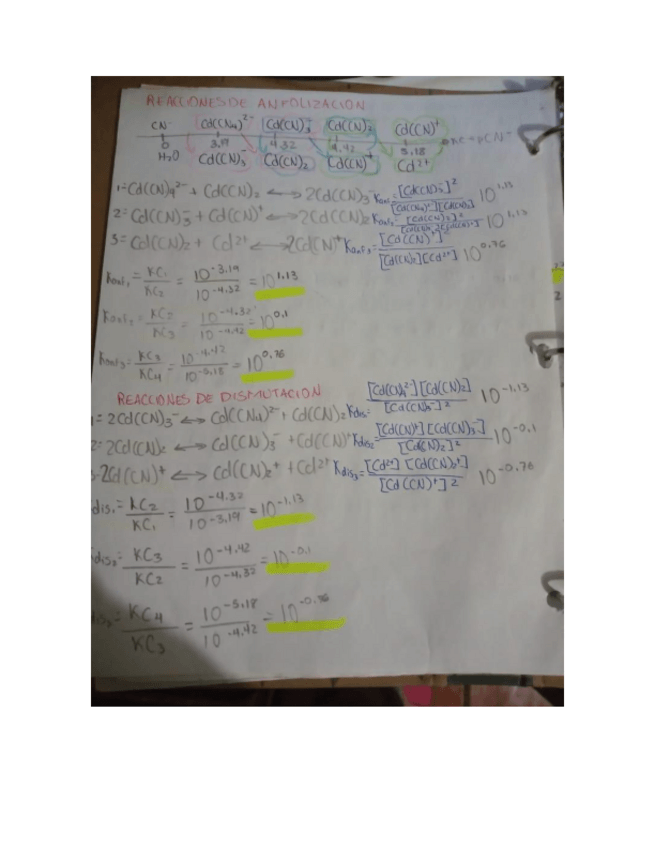 REACCIONES DE ANFOLIZACION
CN⁻ Cd(CN₄)²⁻ [Cd(CN)₃⁻ Cd(CN)₂ Cd(CN)⁺
0 3.19 4.32 4.42 5.18 pCN⁻
H₂O Cd(CN)₃⁻ Cd(CN)₂ Cd(CN)⁺ Cd²⁺
1= Cd(CN)₄²⁻ + Cd(CN)₂ ⟷ 2Cd(CN)₃⁻ Kanf₁= [Cd(CN)₃⁻]² / [Cd(CN₄)²⁻][Cd(CN)₂] 10^1.13
2= Cd(CN)₃⁻ + Cd(CN)⁺ ⟷ 2Cd(CN)₂ Kanf₂= [Cd(CN)₂]² / [Cd(CN)₃⁻][Cd(CN)⁺]
3= Cd(CN)₂ + Cd²⁺ ⟷ 2Cd(CN)⁺ Kanf₃= [Cd(CN)⁺]² / [Cd(CN)₂][Cd²⁺] 10^0.76
Kanf₁ = KC₁/KC₂ = 10^-3.19 / 10^-4.32 = 10^1.13
Kanf₂ = KC₂/KC₃ = 10^-4.32 / 10^-4.42 = 10^0.1
Kanf₃ = KC₃/KC₄ = 10^-4.42 / 10^-5.18 = 10^0.76
REACCIONES DE DISMUTACION
1= 2Cd(CN)₃⁻ ⟷ Cd(CN₄)²⁻ + Cd(CN)₂ Kdis₁= [Cd(CN)₄²⁻][Cd(CN)₂] / [Cd(CN)₃⁻]² 10^-1.13
2= 2Cd(CN)₂ ⟷ Cd(CN)₃⁻ + Cd(CN)⁺ Kdis₂= [Cd(CN)⁺][Cd(CN)₃⁻] / [Cd(CN)₂]² 10^-0.1
3= 2Cd(CN)⁺ ⟷ Cd(CN)₂⁺ + Cd²⁺ Kdis₃= [Cd²⁺][Cd(CN)₂⁺] / [Cd(CN)⁺]² 10^-0.76
dis₁= KC₂/KC₁ = 10^-4.32 / 10^-3.19 = 10^-1.13
dis₂= KC₃/KC₂ = 10^-4.42 / 10^-4.32 = 10^-0.1
dis₃= KC₄/KC₃ = 10^-5.18 / 10^-4.42 = 10^-0.76